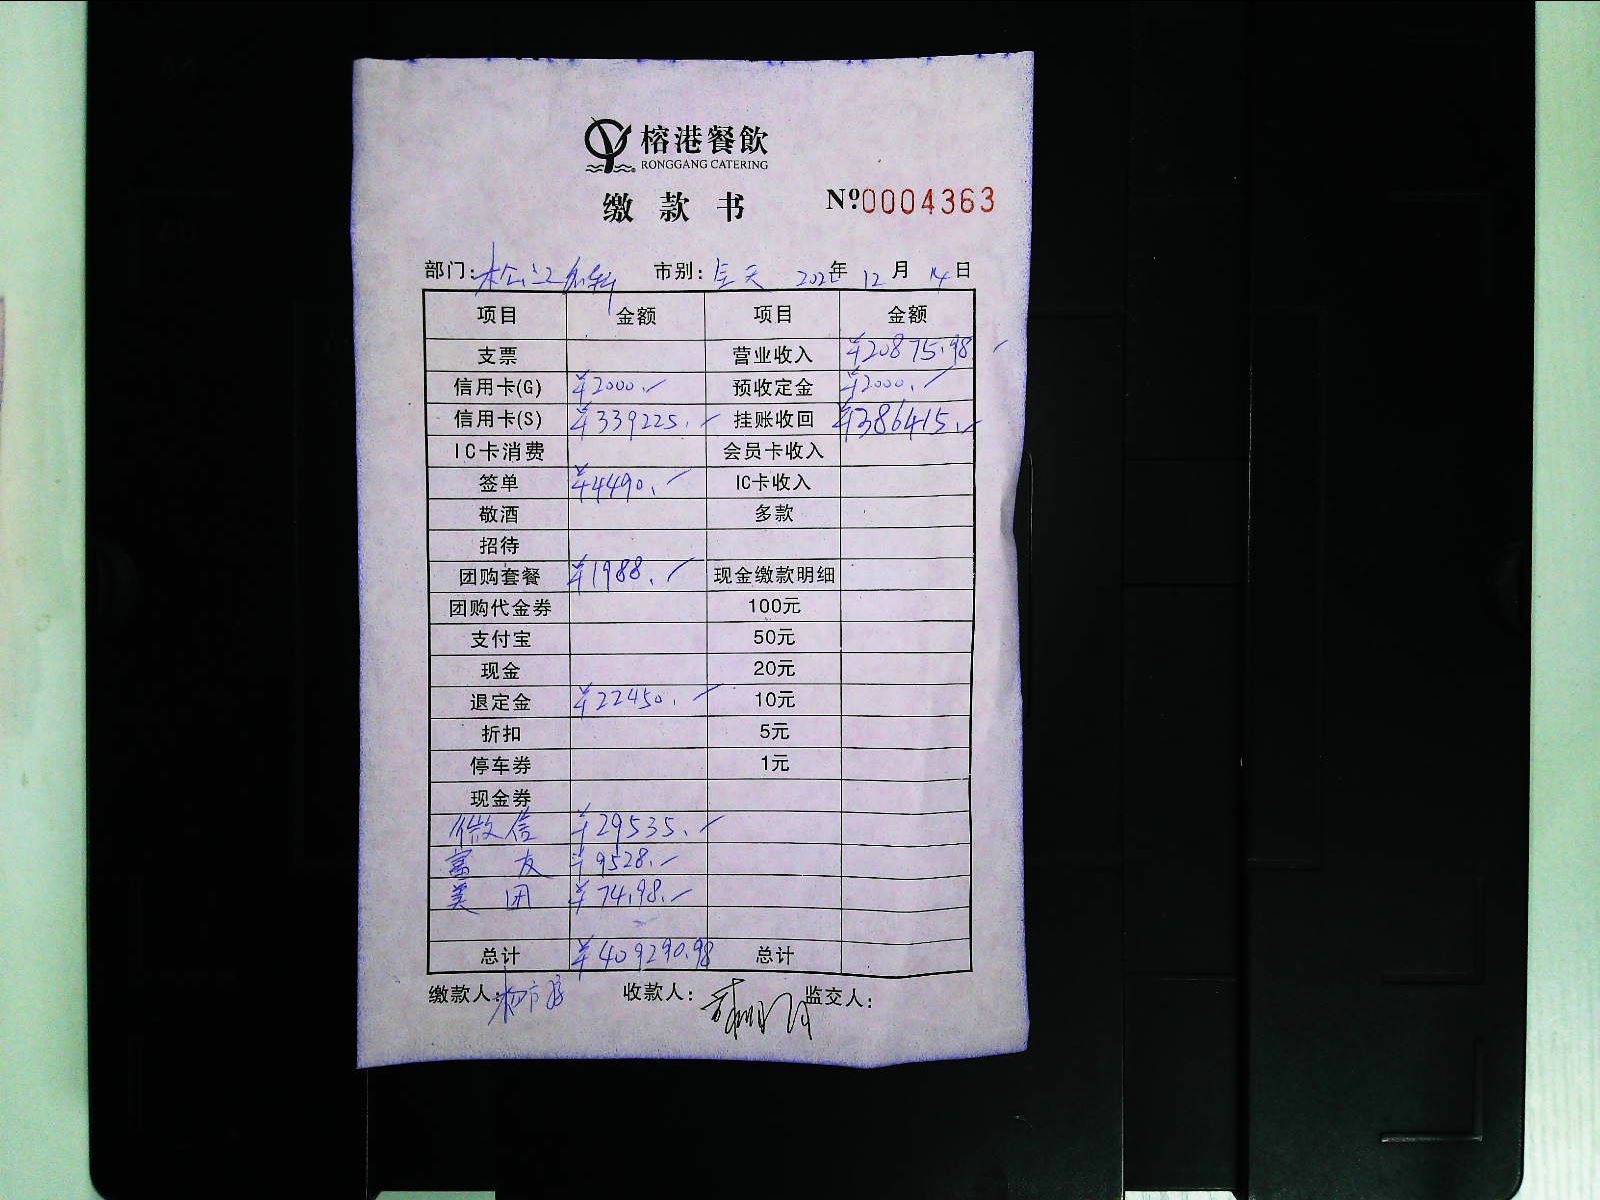 榕港餐飲
RONGGANG CATERING
缴款书 №0004363
部门: 松江 市别: 全天 202 年 12 月 14 日
项目 金额 项目 金额
支票 营业收入 ¥20875.98
信用卡(G) ¥2000.- 预收定金 ¥2000.-
信用卡(S) ¥339225.- 挂账收回 ¥386415.-
IC卡消费 会员卡收入
签单 ¥4490.- IC卡收入
敬酒 多款
招待
团购套餐 ¥1988.- 现金缴款明细
团购代金券 100元
支付宝 50元
现金 20元
退定金 ¥22450.- 10元
折扣 5元
停车券 1元
现金券
微信 ¥29535.-
富友 ¥9528.-
美团 ¥74.98.-
总计 ¥409290.98 总计
缴款人: 收款人: 监交人: